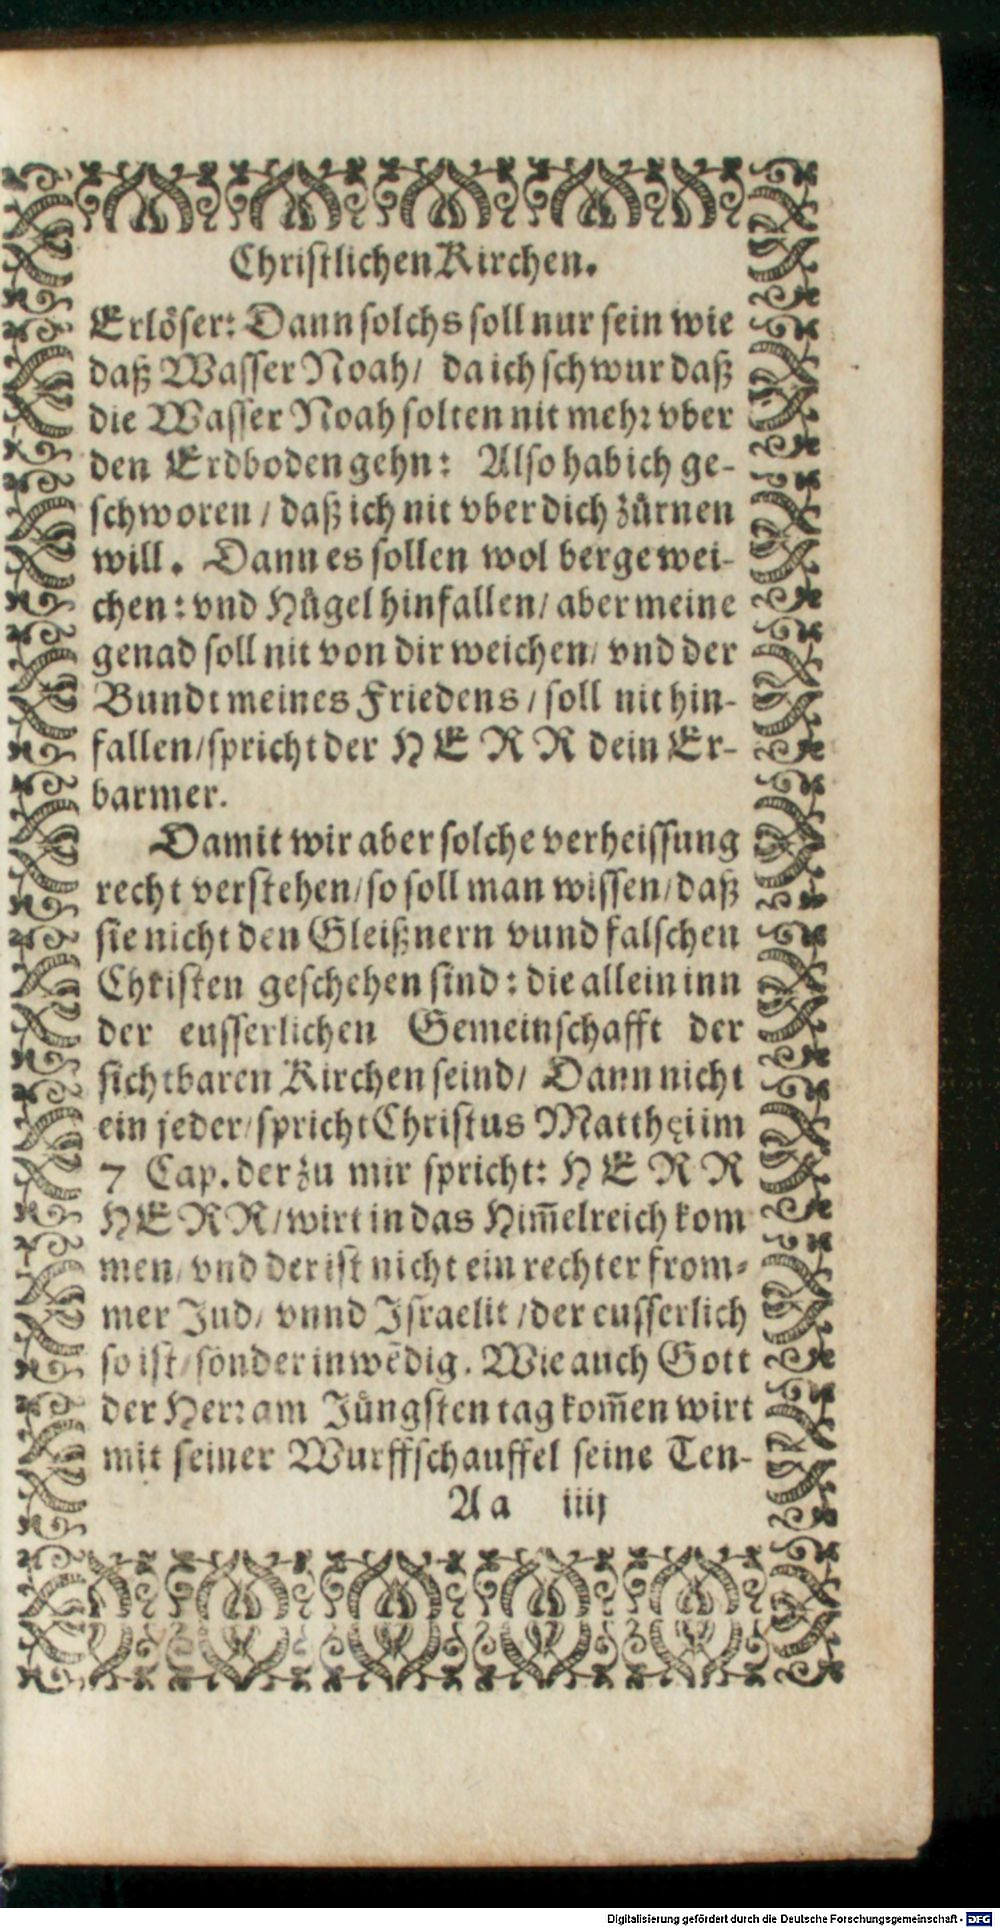 Christlichen Kirchen.
Erlöser: Dann solchs soll nur sein wie
daß Wasser Noah/ da ich schwur daß
die Wasser Noah solten nit mehr vber
den Erdboden gehn: Also hab ich ge-
schworen/ daß ich nit vber dich zürnen
will. Dann es sollen wol berge wei-
chen: vnd Hügel hinfallen/ aber meine
genad soll nit von dir weichen/ vnd der
Bundt meines Friedens/ soll nit hin-
fallen/ spricht der HERR dein Er-
barmer.
Damit wir aber solche verheissung
recht verstehen/ so soll man wissen/ daß
sie nicht den Gleißnern vnnd falschen
Christen geschehen sind: die allein inn
der eusserlichen Gemeinschafft der
sichtbaren Kirchen seind/ Dann nicht
ein jeder/ spricht Christus Matthęi im
7 Cap. der zu mir spricht: HERR
HERR/ wirt in das Him̄elreich kom
men/ vnd der ist nicht ein rechter from-
mer Jud/ vnnd Israelit/ der eusserlich
so ist/ sonder inwēdig. Wie auch Gott
der Herr am Jüngsten tag kom̄en wirt
mit seiner Wurffschauffel seine Ten-
Aa iiij
Digitalisierung gefördert durch die Deutsche Forschungsgemeinschaft - DFG